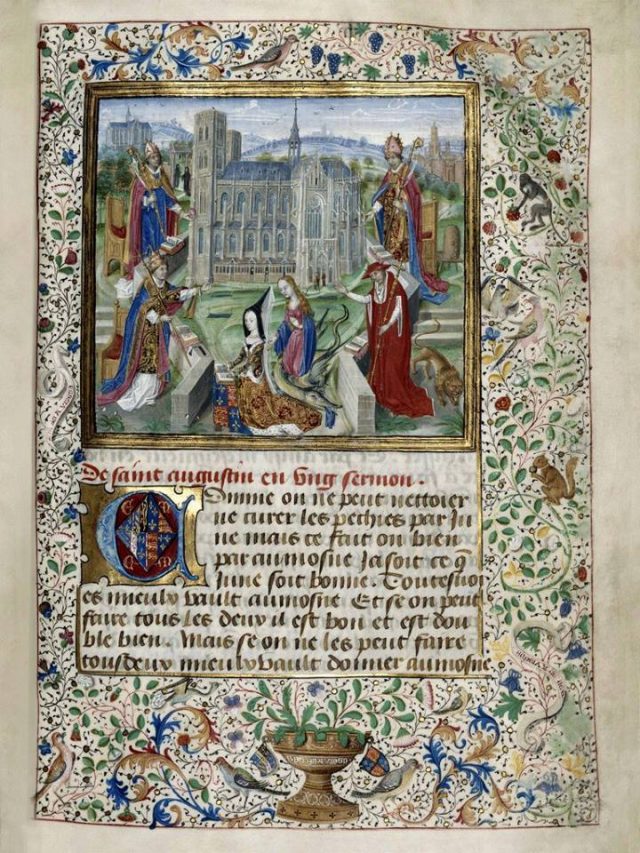 De saint augustin en ung sermon.
Comme on ne peut nettoier
ne curer les pechies par Ju
ne mais ce fait on bien
par aumosne Ja soit ce q̄
June soit bonne. Toutesuoi
es mieulx vault aumosne Et se on peut
faire tous les deux il est bon et est dou
ble bien. Mais se on ne les peut faire
tousdeux mieulx vault donner aumosne